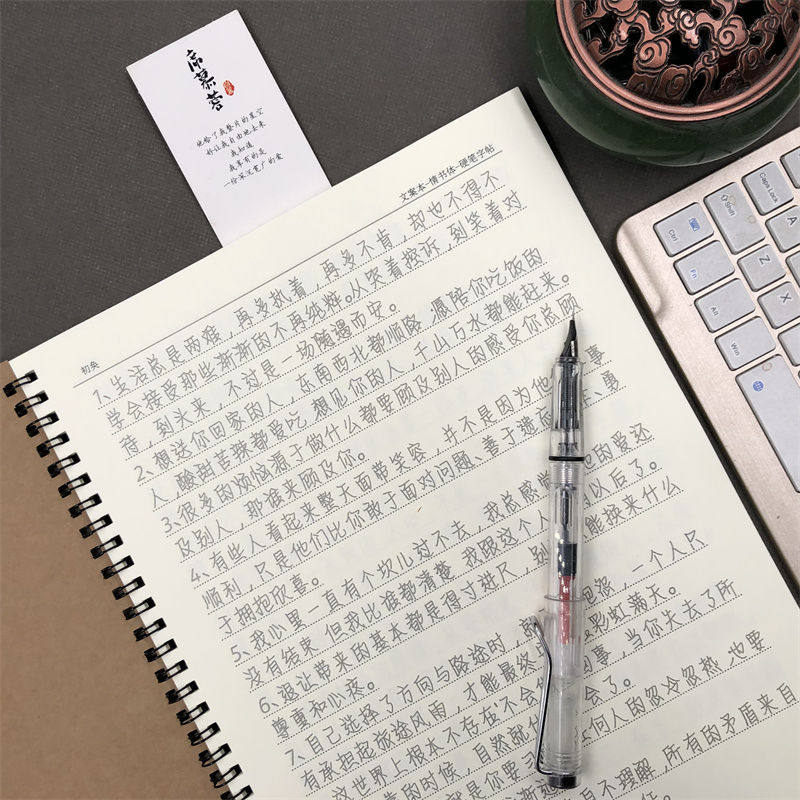 席慕蓉
他给了我整片的星空
好让我自由地去来
我知道
我享有的是
一份深沉宽广的爱
文案本-情书体-硬笔字帖
初矣
1、生活总是两难，再多执着，再多不肯，却也不得不
学会接受那些渐渐的不再纯粹。从哭着控诉，到笑着对
待，到头来，不过是一场随遇而安。
2、想送你回家的人，东南西北都顺路，愿陪你吃饭的
人，酸甜苦辣都爱吃，想见你的人，千山万水都能赶来。
3、很多的烦恼源于做什么都要顾及别人的感受你总顾
及别人，那谁来顾及你。
4、有些人看起来整天面带笑容，并不是因为他 事事
顺利，只是他们比你敢于面对问题、善于遗 、勇
于拥抱欣喜。
5、我心里一直有个坎儿过不去，我总感 他的爱还
没有结束，但我比谁都清楚，我跟这个人 以后了。
6、退让带来的基本都是得寸进尺，别 能换来什么
尊重和心疼。
7、自己选择了方向与路途时，就 抱怨，一个人只
有承担起旅途风雨，才能最终 彩虹满天。
这世界上根本不存在‘不会 事，当你失去了所
靠的时候，自然就 会了。
就是你要 任何人的忽冷忽热，也要
渐 不理解，所有的矛盾来自
Ctrl
Shift
Caps Lock
A
Fn
Z
Alt
X
Win